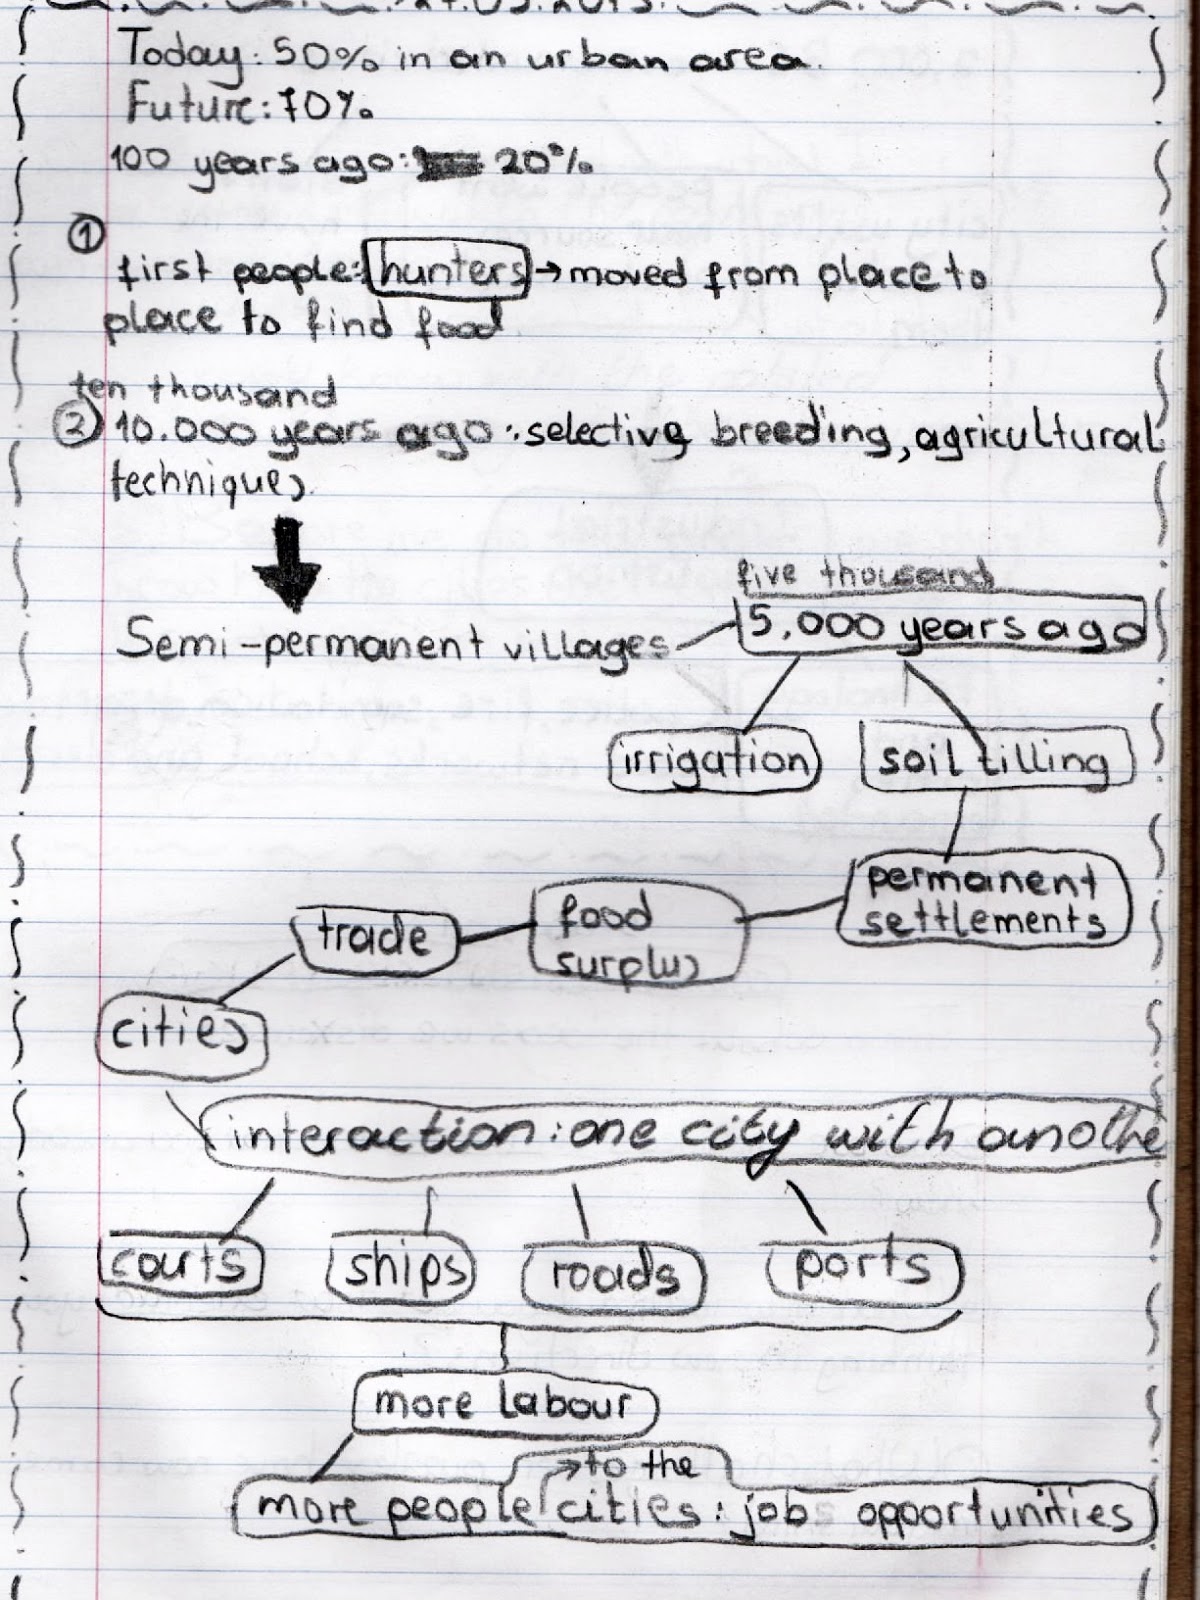 Today: 50% in an urban area.
Future: 70%.
100 years ago: 20%
1
first people: hunters → moved from place to
place to find food
ten thousand
2 10.000 years ago: selective breeding, agricultural
techniques.
five thousand
Semi-permanent villages 5,000 years ago
irrigation soil tilling
permanent
settlements
trade food
surplus
cities
interaction: one city with anothe
courts ships roads ports
more labour
→ to the
more people cities: job opportunities